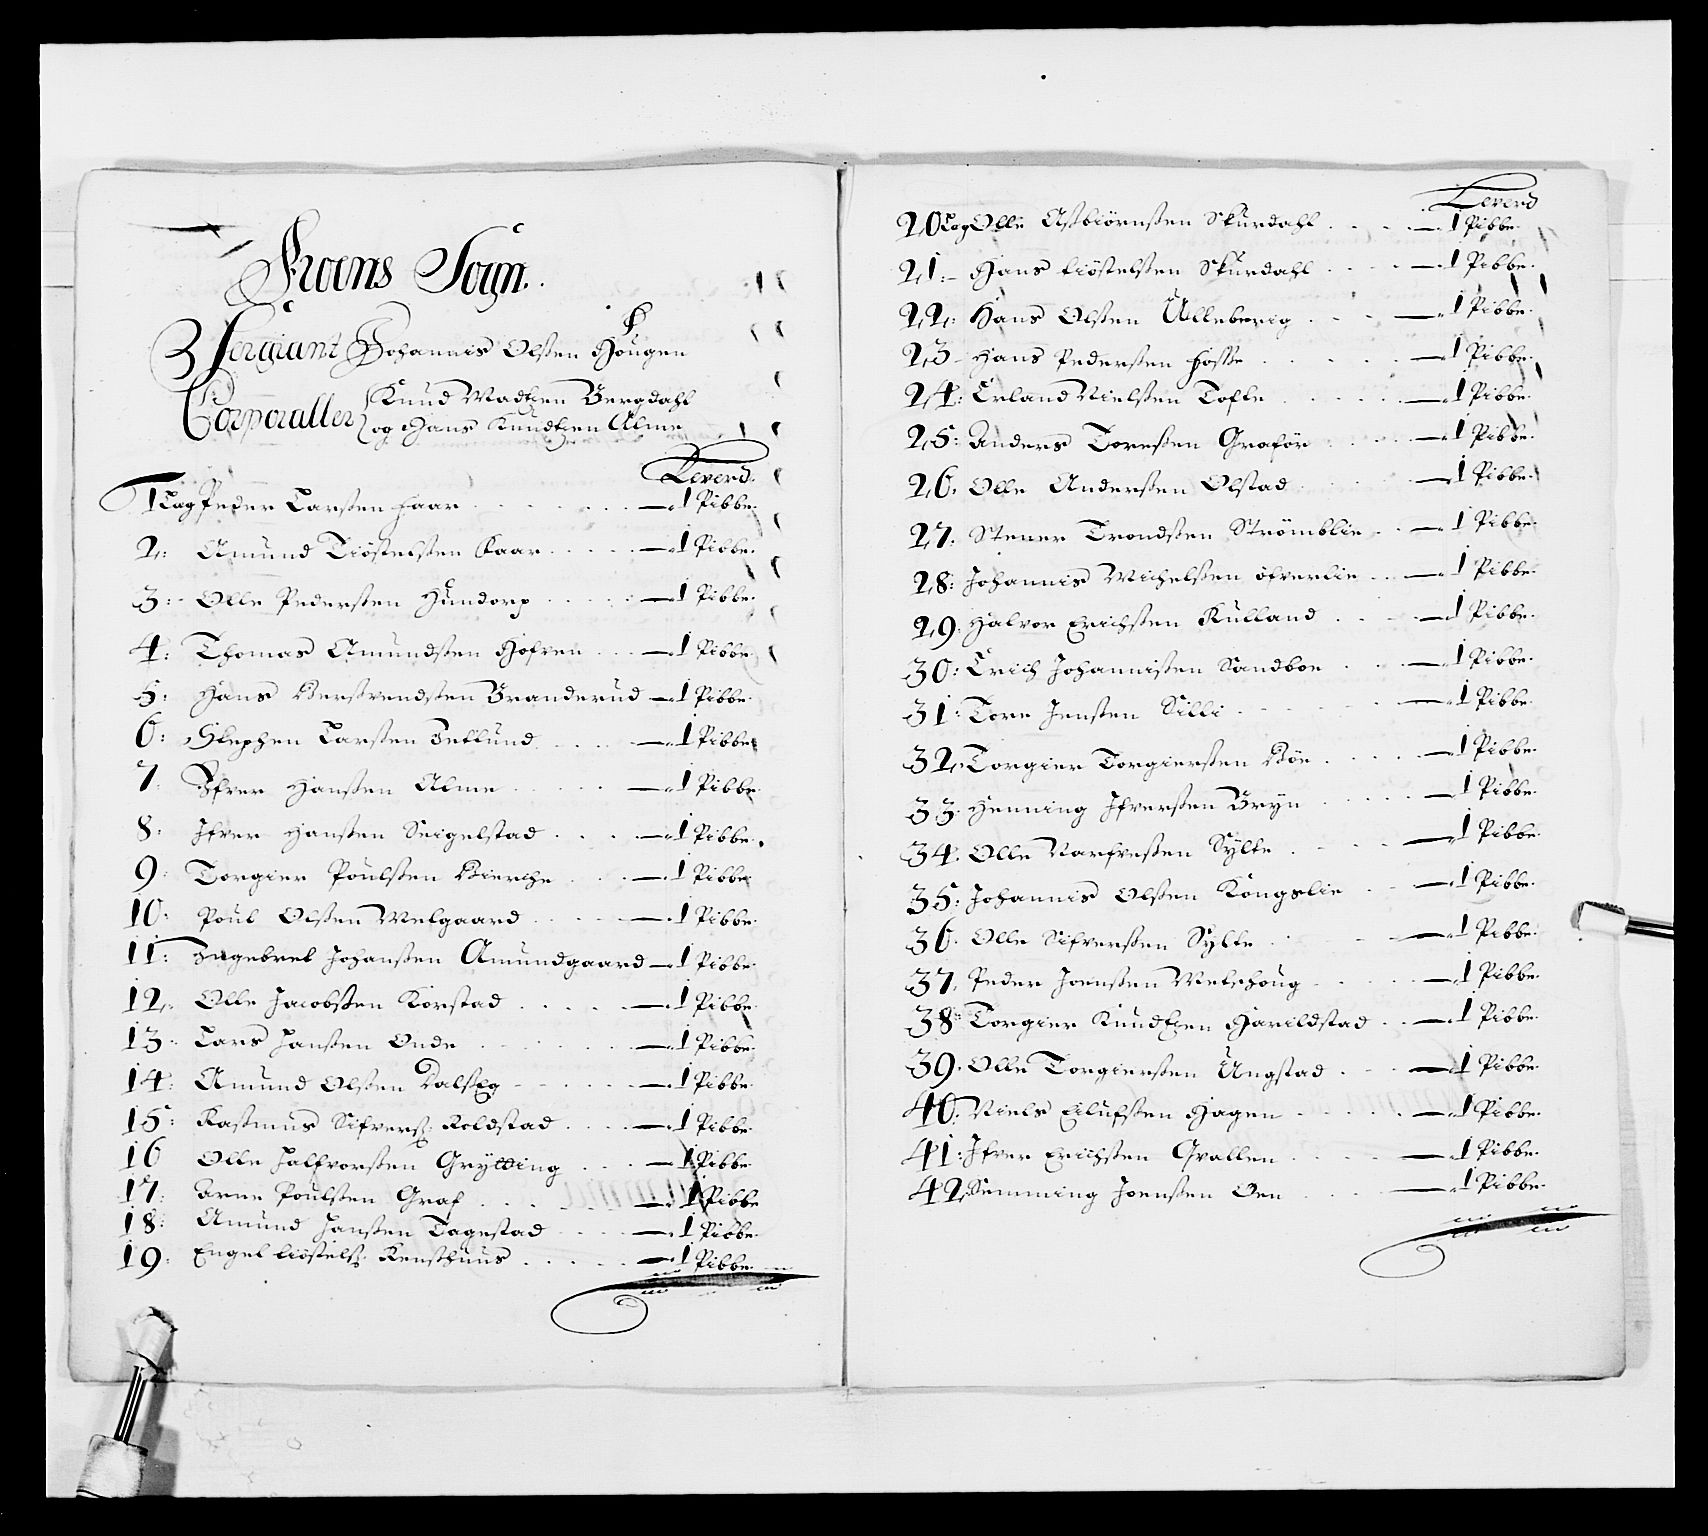 Froens Sogn.
3 Sergiant Johannis Olßen Hougen
Corporaller Knud Madtzen Bergdahl
og Hans Knudtzen Alme
Leverd.
1 Lag Peder Larßen Haar — 1 Pibbe.
2: Amund Tiöstelßen Haar — 1 Pibbe.
3: Olle Pederßen Hundorp — 1 Pibbe.
4: Thomas Amundßen Hofren — 1 Pibbe
5: Hans Berstvendßen Branderud — 1 Pibbe.
6: Stephen Larßen Zetlund — 1 Pibbe
7. Ifver Hanßen Alme — 1 Pibbe
8: Ifver Hanßen Seigelstad — 1 Pibbe.
9: Torgier Poulßen Kierche — 1 Pibbe
10: Poul Olßen Melgaard — 1 Pibbe.
11: Ingebret Johanßen Amundgaard — 1 Pibbe
12: Olle Jacobßen Korstad — 1 Pibbe
13: Lars Hanßen Onde — 1 Pibbe.
14: Amund Olßen Dalseg — 1 Pibbe.
15: Rasmus Sifverß: Roldstad — 1 Pibbe.
16 Olle Halfvorßen Grytting — 1 Pibbe
17: Arne Poulßen Graf — 1 Pibbe
18: Amund Hanßen Tagestad — 1 Pibbe.
19: Engel tiöstelß: Kensthuus — 1 Pibbe.
Leverd
20 Lag Olle Asbiörnßen Skurdahl — 1 Pibbe.
21: Hans tiöstelßen Skurdahl — 1 Pibbe.
22: Hans Olßen Ulleberig — 1 Pibbe.
23 Hans Pederßen Hosse — 1 Pibbe.
24: Erland Nielßen Tofte — 1 Pibbe.
25: Anders Toreßen Graför — 1 Pibbe.
26. Olle Anderßen Olstad — 1 Pibbe.
27. Stener Trondßen Strömblie — 1 Pibbe
28: Johannis Michelßen öfverlie — 1 Pibbe.
29. Halvor Erichßen Rulland — 1 Pibbe.
30: Erich Johannißen Sandboe — 1 Pibbe.
31: Tore Jenßen Silli — 1 Pibbe.
32. Torgier Torgierßen Böe — 1 Pibbe.
33. Henning Ifverßen Bryn — 1 Pibbe.
34. Olle Narfveßen Sylte — 1 Pibbe.
35: Johannis Olßen Kongslie — 1 Pibbe.
36. Olle Sifverßen Sylte — 1 Pibbe.
37. Peder Joenßen Melshoug — 1 Pibbe.
38: Torgier Knudtzen Harildstad — 1 Pibbe.
39. Olle Torgierßen Ungstad — 1 Pibbe.
40. Niels Eilufßen Hagen — 1 Pibbe.
41: Ifver Erichßen Qvallen — 1 Pibbe.
42. Semming Joenßen Oen — 1 Pibbe.